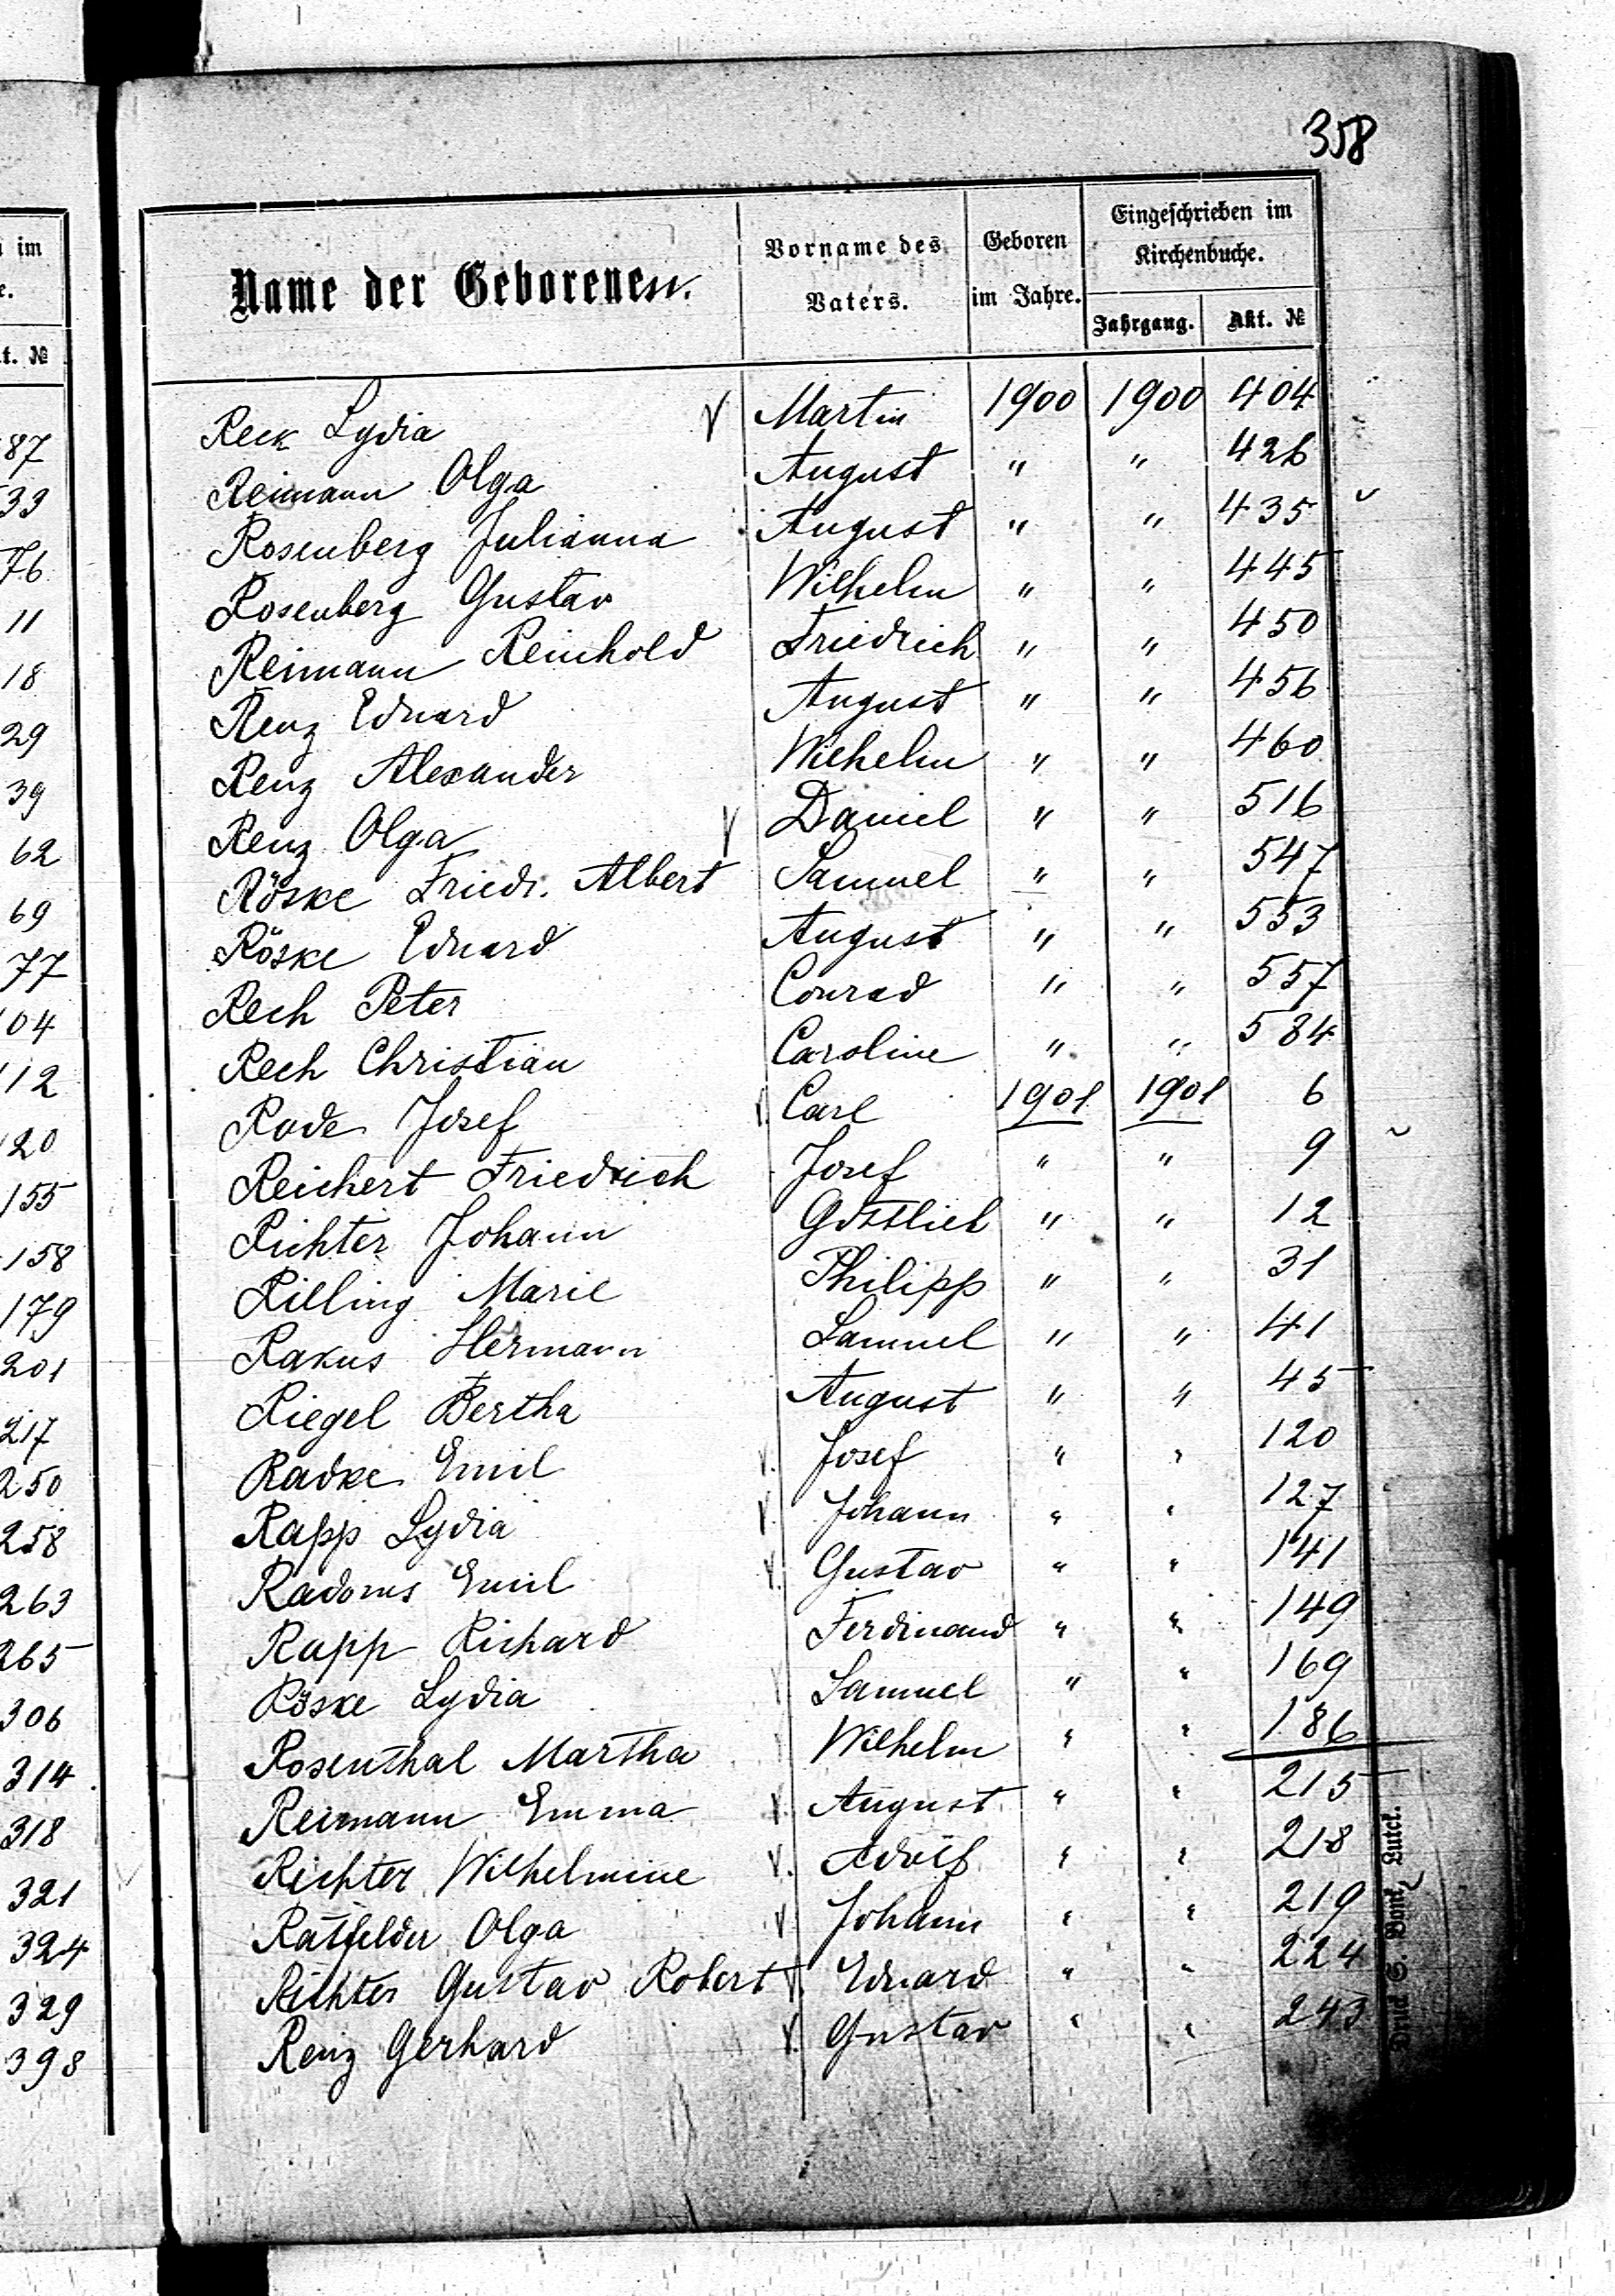 358
im
e.
t. №
87
33
76
11
18
29
39
62
69
77
104
112
120
155
158
179
201
217
250
258
263
265
306
314
318
321
324
329
398
Name der Geborenen. Vorname des Vaters. Geboren im Jahre. Eingeschrieben im Kirchenbuche.
Jahrgang. Akt. №
Reck Lydia V Martin 1900 1900 404
Reimann Olga August " " 426
Rosenberg Julianna August " " 435
Rosenberg Gustav Wilhelm " " 445
Reimann Reinhold Friedrich " " 450
Renz Eduard August " " 456
Renz Alexander Wilhelm " " 460
Renz Olga V Daniel " " 516
Röske Friedr. Albert Samuel " " 547
Röske Eduard August " " 553
Rech Peter Conrad " " 557
Rech Christian Caroline " " 584
Rode Josef V Carl 1901 1901 6
Reichert Friedrich Josef " " 9
Richter Johann Gottlieb " " 12
Rilling Marie Philipp " " 31
Rakus Hermann Samuel " " 41
Riegel Bertha August " " 45
Radke Emil V. Josef " " 120
Rapp Lydia V Johann " " 127
Radoms Emil V. Gustav " " 141
Rapp Richard Ferdinand " " 149
Röske Lydia Samuel " " 169
Rosenthal Martha Wilhelm " " 186
Reimann Emma V. August " " 215
Richter Wilhelmine V. Adolf " " 218
Ratfelder Olga V Johann " " 219
Richter Gustav Robert V. Eduard " " 224
Renz Gerhard V. Gustav " " 243
Druck S. Bont, Lutzk.